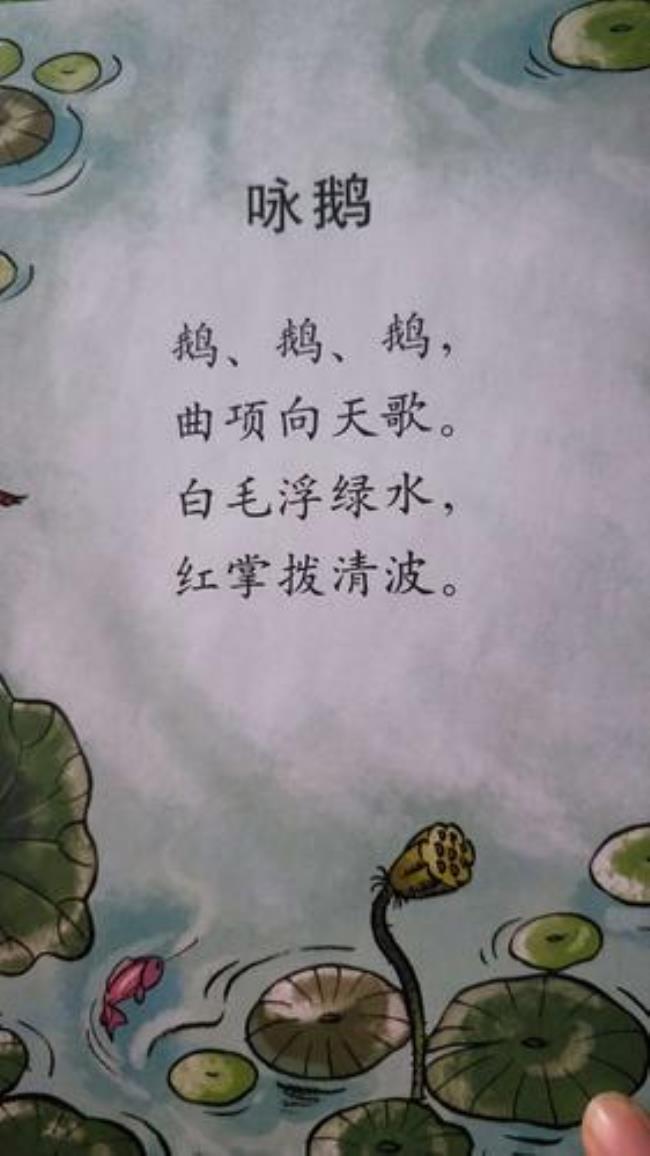 咏鹅
鹅、鹅、鹅，
曲项向天歌。
白毛浮绿水，
红掌拨清波。